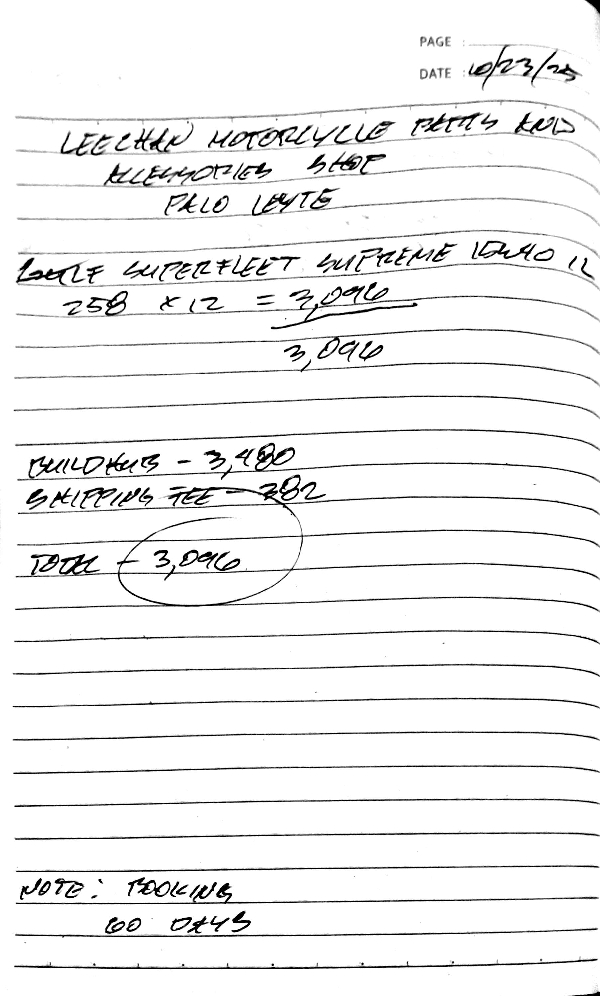 PAGE :
DATE : 10/23/25
LEECHAN MOTORCYCLE PARTS AND
ACCESSORIES SHOP
PALO LEYTE
SUPERFLEET SUPREME 15W40 1L
258 x 12 = 3,096
3,096
BUILDHUB - 3,480
SHIPPING FEE - 382
TOTAL - 3,096
NOTE: BOOKING
60 DAYS